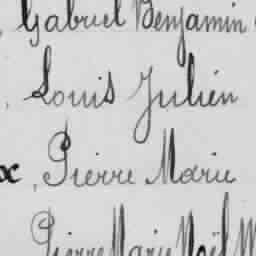 , Gabriel Benjamin
, Louis Julien
x, Pierre Marie
Pierre Marie Noël M